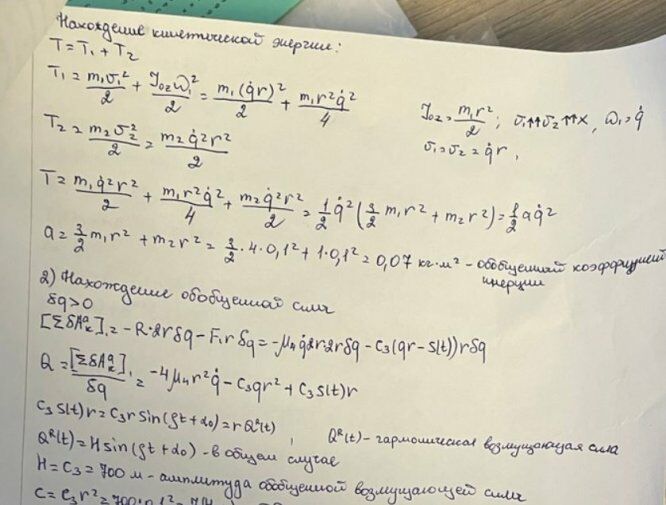 Нахождение кинетической энергии:
T = T₁ + T₂
T₁ = m₁υ₁²/2 + J₀z ω₁²/2 = m₁(q̇r)²/2 + m₁r²q̇²/4
J₀z = m₁r²/2 ; υ₁↑↑υ₂↑↑x, ω₁ = q̇
T₂ = m₂υ₂²/2 = m₂q̇²r²/2
υ₁ = υ₂ = q̇r,
T = m₁q̇²r²/2 + m₁r²q̇²/4 + m₂q̇²r²/2 = 1/2 q̇²(3/2 m₁r² + m₂r²) = 1/2 aq̇²
a = 3/2 m₁r² + m₂r² = 3/2 · 4·0,1² + 1·0,1² = 0,07 кг·м² - обобщенный коэффициент
инерции
2) Нахождение обобщенной силы
δq>0
[ΣδAᵃₖ]₁ = -R·2rδq - F₁rδq = -μ₄q̇2r·2rδq - c₃(qr - s(t))rδq
Q = [ΣδAᵃₖ]₁/δq = -4μ₄r²q̇ - c₃qr² + c₃s(t)r
c₃s(t)r = c₃r sin(ρt+α₀) = rQᴿ(t) , Qᴿ(t) - гармоническая возмущающая сила
Qᴿ(t) = H sin(ρt+α₀) - в общем случае
H = c₃ = 700 м - амплитуда обобщенной возмущающей силы
c = c₃r² = 700·0,1² =